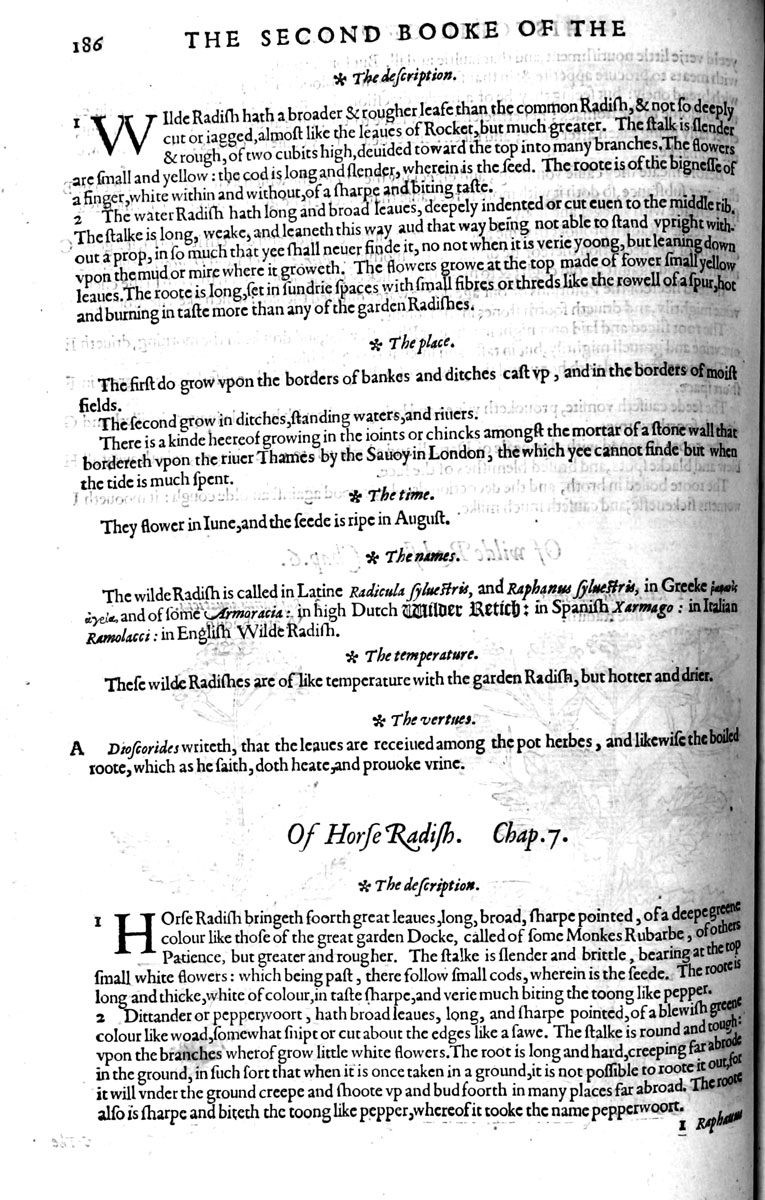 186 THE SECOND BOOKE OF THE
✻ The deſcription.
1 WIlde Radiſh hath a broader & rougher leafe than the common Radiſh, & not ſo deeply
cut or iagged, almoſt like the leaues of Rocket, but much greater. The ſtalk is ſlender
& rough, of two cubits high, deuided toward the top into many branches. The flowers
are ſmall and yellow: the cod is long and ſlender, wherein is the ſeed. The roote is of the bigneſſe of
a finger, white within and without, of a ſharpe and biting taſte.
2 The water Radiſh hath long and broad leaues, deepely indented or cut euen to the middle rib.
The ſtalke is long, weake, and leaneth this way aud that way being not able to ſtand vpright with-
out a prop, in ſo much that yee ſhall neuer finde it, no not when it is verie yoong, but leaning down
vpon the mud or mire where it groweth. The flowers growe at the top made of fower ſmall yellow
leaues. The roote is long, ſet in ſundrie ſpaces with ſmall fibres or threds like the rowell of a ſpur, hot
and burning in taſte more than any of the garden Radiſhes.
✻ The place.
The firſt do grow vpon the borders of bankes and ditches caſt vp, and in the borders of moiſt
fields.
The ſecond grow in ditches, ſtanding waters, and riuers.
There is a kinde heereof growing in the ioints or chincks amongſt the mortar of a ſtone wall that
bordereth vpon the riuer Thames by the Sauoy in London, the which yee cannot finde but when
the tide is much ſpent.
✻ The time.
They flower in Iune, and the ſeede is ripe in Auguſt.
✻ The names.
The wilde Radiſh is called in Latine Radicula ſylueſtris, and Raphanus ſylueſtris, in Greeke
ἀγρία, and of ſome Armoracia: in high Dutch Wilder Retich: in Spaniſh Xarmago: in Italian
Ramolacci: in Engliſh Wilde Radiſh.
✻ The temperature.
Theſe wilde Radiſhes are of like temperature with the garden Radiſh, but hotter and drier.
✻ The vertues.
A Dioſcorides writeth, that the leaues are receiued among the pot herbes, and likewiſe the boiled
roote, which as he ſaith, doth heate, and prouoke vrine.
Of Horſe Radiſh. Chap. 7.
✻ The deſcription.
1 HOrſe Radiſh bringeth foorth great leaues, long, broad, ſharpe pointed, of a deepe greene
colour like thoſe of the great garden Docke, called of ſome Monkes Rubarbe, of others
Patience, but greater and rougher. The ſtalke is ſlender and brittle, bearing at the top
ſmall white flowers: which being paſt, there follow ſmall cods, wherein is the ſeede. The roote is
long and thicke, white of colour, in taſte ſharpe, and verie much biting the toong like pepper.
2 Dittander or pepperwoort, hath broad leaues, long, and ſharpe pointed, of a blewiſh greene
colour like woad, ſomewhat ſnipt or cut about the edges like a ſawe. The ſtalke is round and tough:
vpon the branches wherof grow little white flowers. The root is long and hard, creeping far abrode
in the ground, in ſuch ſort that when it is once taken in a ground, it is not poſſible to roote it out, for
it will vnder the ground creepe and ſhoote vp and bud foorth in many places far abroad. The roote
alſo is ſharpe and biteth the toong like pepper, whereof it tooke the name pepperwoort.
1 Raphanus